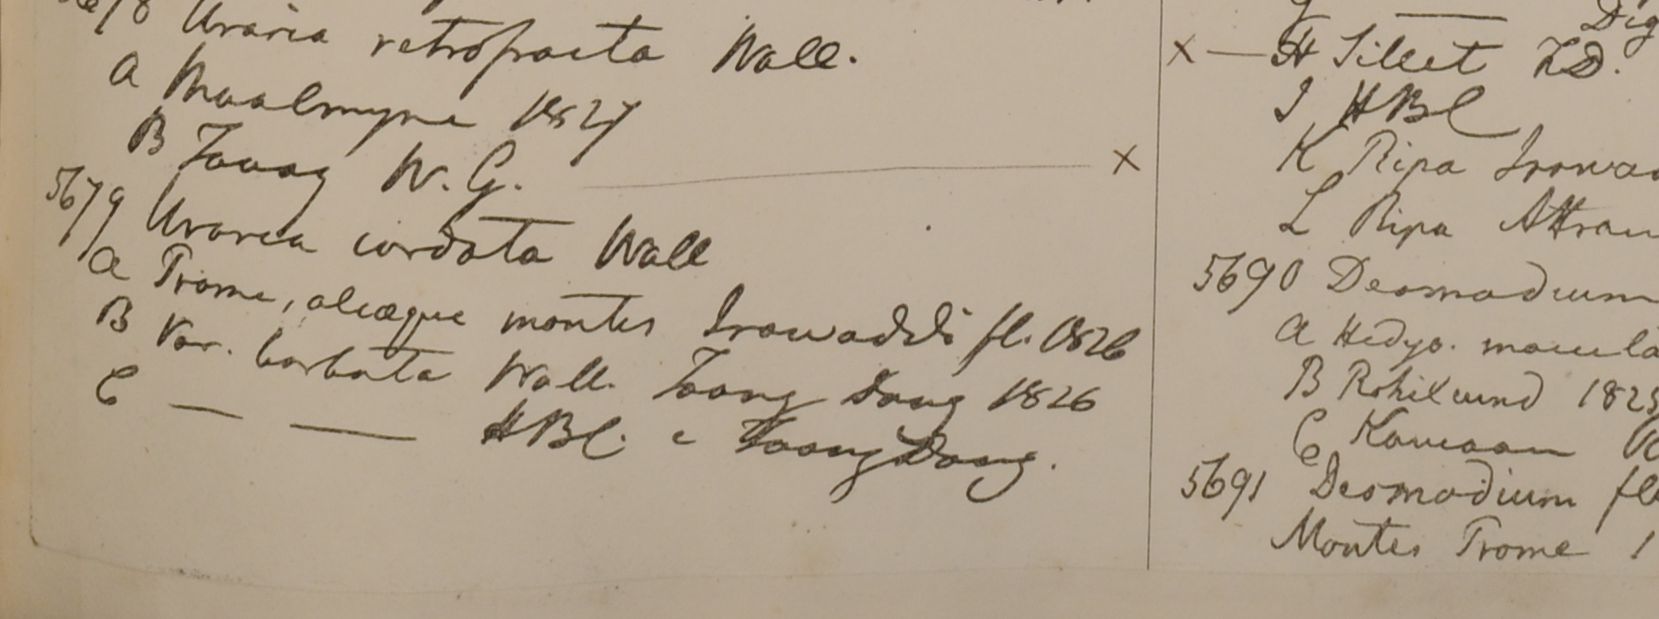 5678 Uraria retrofracta Wall.
A Moalmyne 1827
B Tavoy W.G. x
5679 Uraria cordata Wall
A Prome, aliæque montes Irawaddi fl. 1826
B Var. barbata Wall. Toong Dong 1826
C — — HBC. e Toong Dong.
Dig
x — H Sillet FD.
I HBC
K Ripa Irawa
L Ripa Attran
5690 Desmodium
A Hedys. macula
B Rohilcund 1825
C Kamaon
5691 Desmodium fl
Montes Prome 1